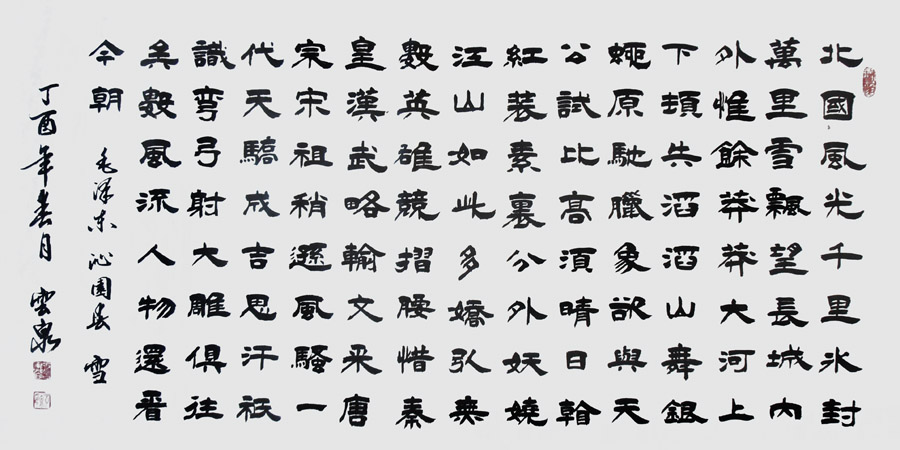 北國風光千里氷封
萬里雪飄望長城内
外惟餘莽莽大河上
下頓失滔滔山舞銀
蛇原馳臘象欲與天
公試比高須晴日看
紅裝素裹分外妖嬈
江山如此多嬌引無
數英雄競摺腰惜秦
皇漢武略輸文采唐
宗宋祖稍遜風騷一
代天驕成吉思汗衹
識彎弓射大雕俱往
矣數風流人物還看
今朝 毛泽东沁園春 雪
丁酉年春月 雲泉